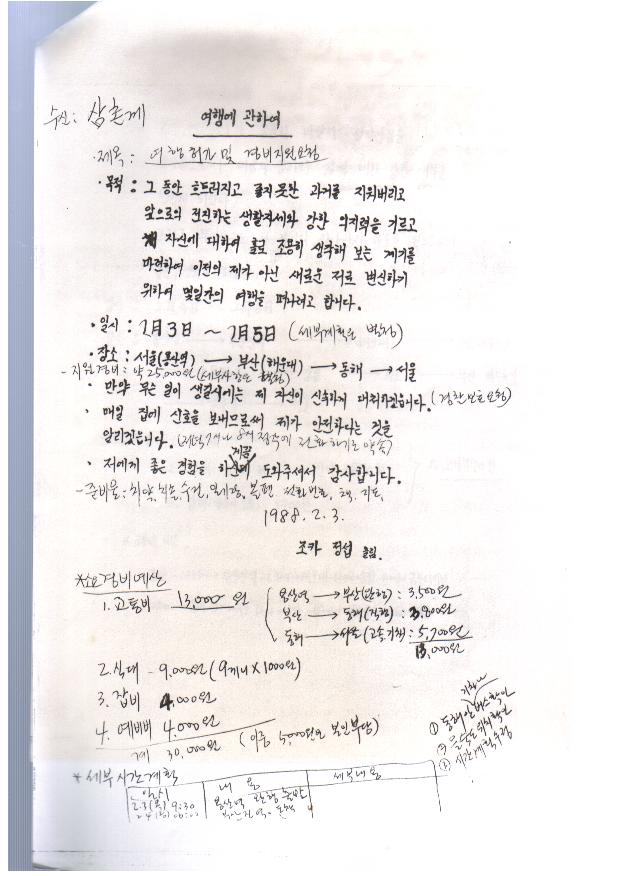 수신: 삼촌께
여행에 관하여
·제목: 여행허가 및 경비지원요청
·목적: 그 동안 흐트러지고 옳지못한 과거를 지워버리고
앞으로의 전진하는 생활자세와 강한 의지력을 기르고
자신에 대하여 홀로 조용히 생각해 보는 계기를
마련하여 이전의 제가 아닌 새로운 저로 변신하기
위하여 몇일간의 여행을 떠나려고 합니다.
·일시: 2月3日 ~ 2月5日 (세부계획은 별첨)
·장소: 서울(용산역) → 부산(해운대) → 동해 → 서울
- 지원경비: 약 25,000원 (세부사항은 별첨)
· 만약 무슨 일이 생길시에는 제 자신이 신속하게 대처하겠습니다. (경찰보호요청)
· 매일 집에 신호를 보내므로써 제가 안전하다는 것을
알리겠습니다. (저녁 7시나 8시 정각에 전화하기로 약속)
· 저에게 좋은 경험을 하게끔 도와주셔서 감사합니다.
- 준비물: 치약, 치솔, 수건, 일기장, 볼펜, 전화번호, 책, 지도,
1988. 2. 3.
조카 정섭 올림.
*소요경비예산
1. 교통비 13,000원
용산역 → 부산( ): 3,500원
부산 → 동해(직행): 3,800원
동해 → 서울(고속, ): 5,700원
13,000원
2. 식대 - 9,000원 (9끼니 X 1000원)
3. 잡비 4,000원
4. 예비비 4,000원
계 30,000원 (이중 5,000원은 본인부담)
① 동해안
③ 시간계획수정
* 세부시간계획
일시 내용 세부내용
2.3(水) 9:30 용산역 출발
2.4